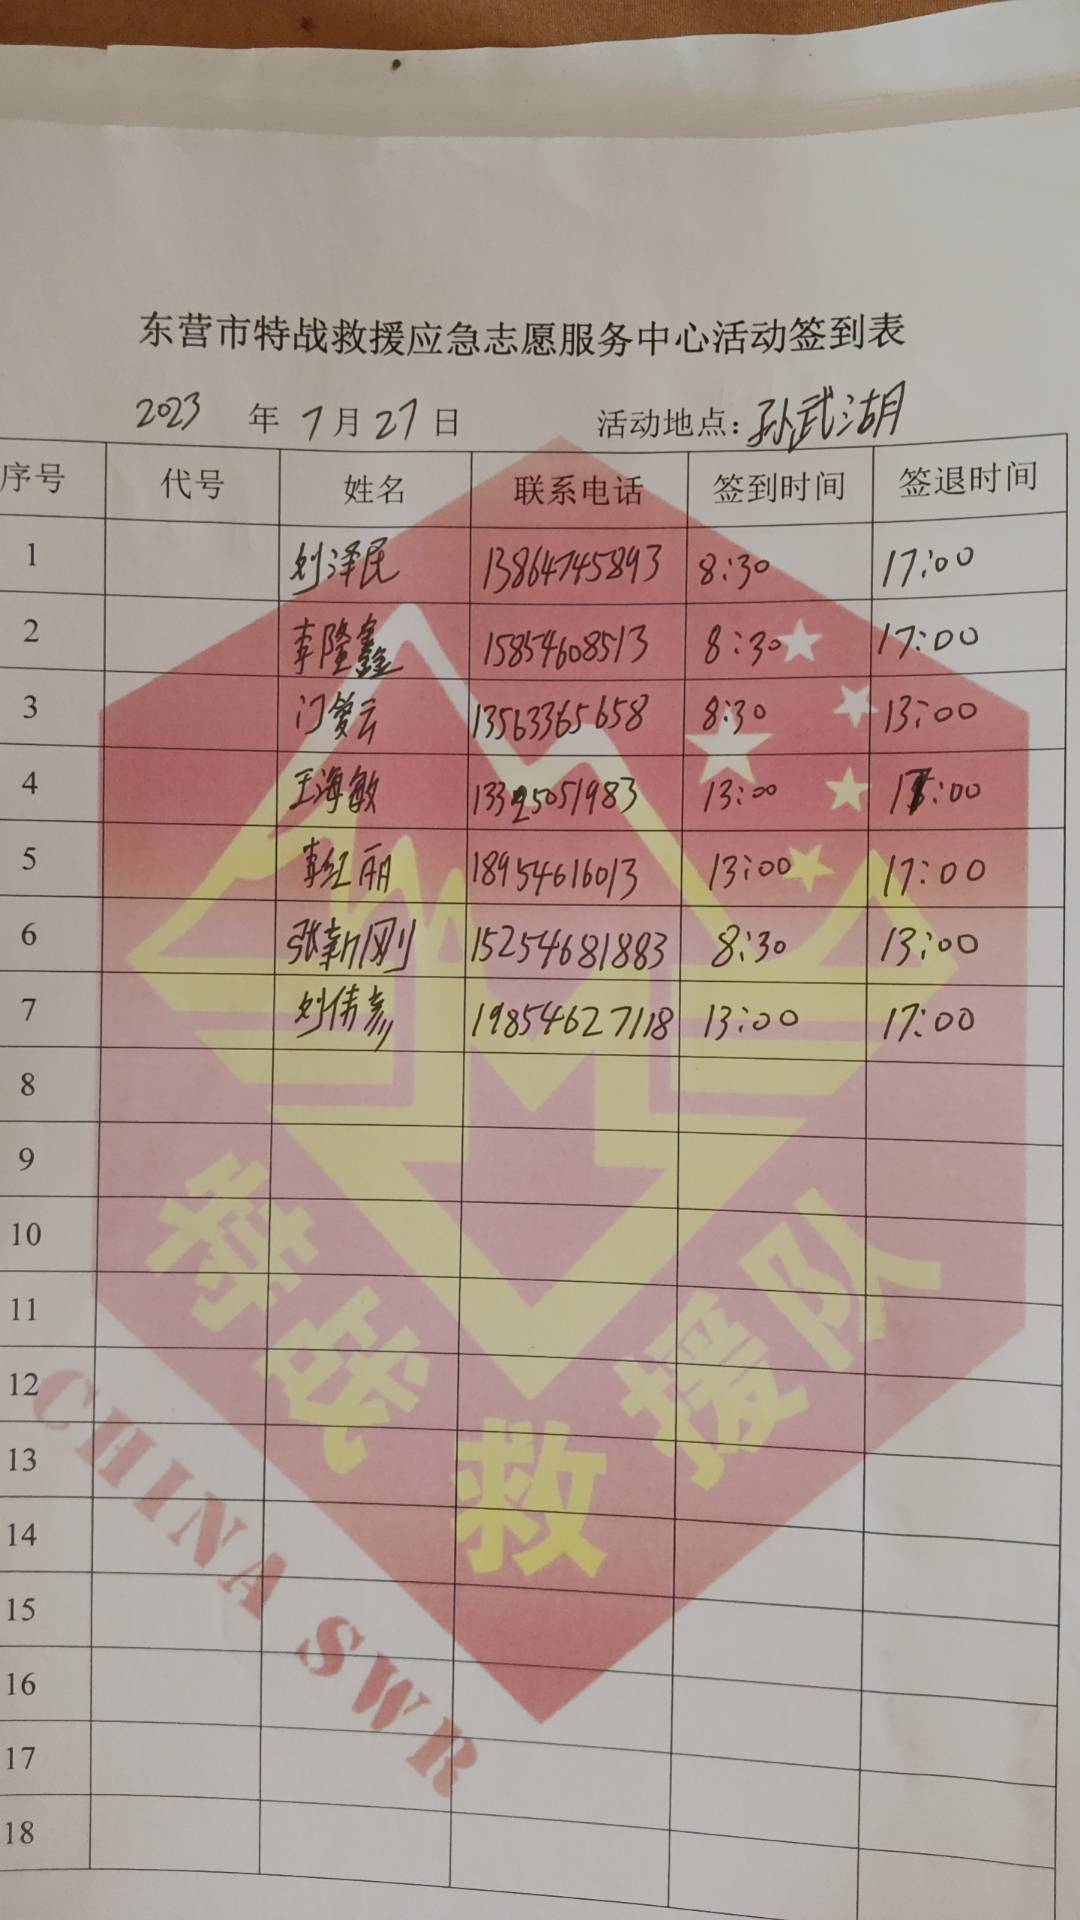 东营市特战救援应急志愿服务中心活动签到表
2023 年 7月27日 活动地点:孙武湖
序号 代号 姓名 联系电话 签到时间 签退时间
1 刘泽民 13864745893 8:30 17:00
2 李隆鑫 15854608513 8:30 17:00
3 门云 13563365658 8:30 13:00
4 王海敏 13395051983 13:00 :00
5 李红丽 18954616013 13:00 17:00
6 张新刚 15254681883 8:30 13:00
7 刘伟彦 19854627118 13:00 17:00
8
9
10
11
12
13
14
15
16
17
18
特战救援队
CHINA SWR